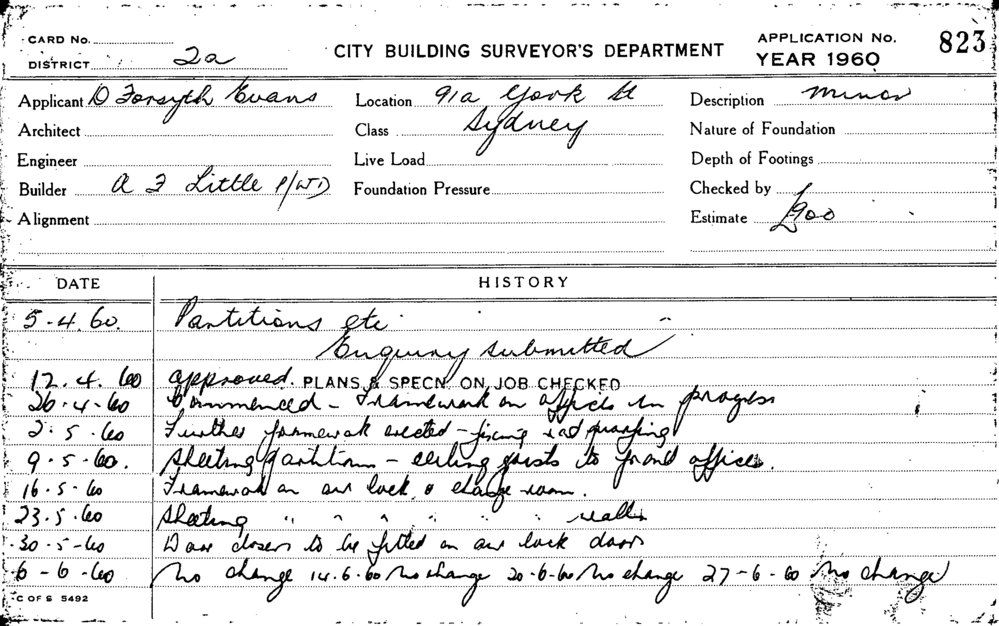 CARD No.
DISTRICT 2a
CITY BUILDING SURVEYOR'S DEPARTMENT
APPLICATION No. 823
YEAR 1960
Applicant D Forsyth Evans
Location 91a York St
Description Minor
Architect
Class Sydney
Nature of Foundation
Engineer
Live Load
Depth of Footings
Builder A F Little P/L
Foundation Pressure
Checked by
Alignment
Estimate £900
DATE HISTORY
5-4.60. Partitions etc
Enquiry submitted
12.4.60 approved. PLANS & SPECN. ON JOB CHECKED
26-4-60 Commenced - Framework on offices in progress
2.5.60 Further framework erected - fixing proofing
9.5.60. Sheeting partitions - ceiling joists to front offices.
16.5.60 Framework on air lock & change room.
23.5.60 Sheeting " " " " " " walls
30-5-60 Door closers to be fitted on air lock doors
6-6-60 No change 14.6.60 No change 20-6-60 No change 27-6-60 No change
C OF S 5492